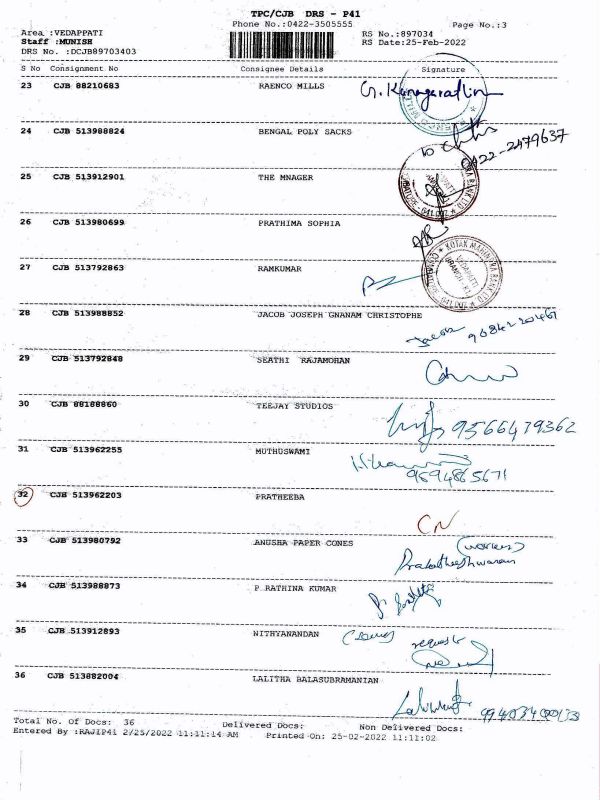 TPC/CJB DRS - P41
Phone No.:0422-3505555 Page No.:3
Area :VEDAPPATI RS No.:897034
Staff :MUNISH RS Date:25-Feb-2022
DRS No. :DCJB89703403
S No Consignment No Consignee Details Signature
23 CJB 88210683 RAENCO MILLS G. Kanagarathin
24 CJB 513988824 BENGAL POLY SACKS
0422-2479637
25 CJB 513912901 THE MNAGER
26 CJB 513980699 PRATHIMA SOPHIA
KOTAK MAHINDRA BANK LTD
27 CJB 513792863 RAMKUMAR
28 CJB 513988852 JACOB JOSEPH GNANAM CHRISTOPHE
Jacob 9684220467
29 CJB 513792848 SEATHI RAJAMOHAN
30 CJB 88188860 TEEJAY STUDIOS
9566479362
31 CJB 513962255 MUTHUSWAMI
9594865671
32 CJB 513962203 PRATHEEBA
CN
33 CJB 513980792 ANUSHA PAPER CONES (worker)
34 CJB 513988873 P RATHINA KUMAR
35 CJB 513912893 NITHYANANDAN
36 CJB 513882004 LALITHA BALASUBRAMANIAN
Total No. Of Docs: 36 Delivered Docs: Non Delivered Docs:
Entered By :RAJIP41 2/25/2022 11:11:14 AM Printed On: 25-02-2022 11:11:02